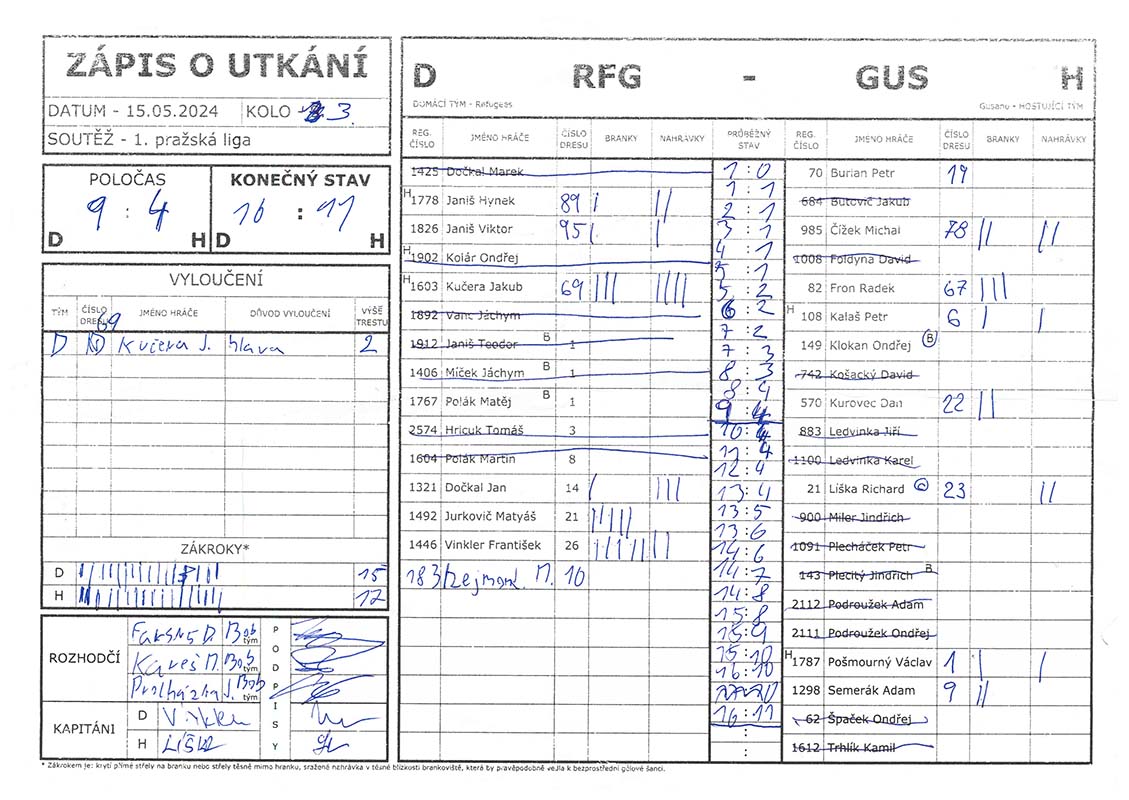 ZÁPIS O UTKÁNÍ
DATUM - 15.05.2024 KOLO 3.
SOUTĚŽ - 1. pražská liga
POLOČAS
9 : 4
D H
KONEČNÝ STAV
16 : 11
D H
VYLOUČENÍ
TÝM ČÍSLO DRESU JMÉNO HRÁČE DŮVOD VYLOUČENÍ VÝŠE TRESTU
D 69 Kučera J. hlava 2
ZÁKROKY*
D 15
H 12
ROZHODČÍ
Bob tým
Kareš M. Bob tým
Procházka J. Bob tým
PODPISY
KAPITÁNI
D
H LIŠKA
D RFG - GUS H
DOMÁCÍ TÝM - Refugess Gusano - HOSTUJÍCÍ TÝM
REG. ČÍSLO JMÉNO HRÁČE ČÍSLO DRESU BRANKY NAHRÁVKY PRŮBĚŽNÝ STAV REG. ČÍSLO JMÉNO HRÁČE ČÍSLO DRESU BRANKY NAHRÁVKY
1425 Dočkal Marek
H 1778 Janiš Hynek 89 | ||
1826 Janiš Viktor 95 | |
H 1902 Kolár Ondřej
H 1603 Kučera Jakub 69 ||| ||||
1892 Vanc Jáchym
1912 Janiš Teodor B 1
1406 Míček Jáchym B 1
1767 Polák Matěj B 1
2574 Hricuk Tomáš 3
1604 Polák Martin 8
1321 Dočkal Jan 14 | |||
1492 Jurkovič Matyáš 21 |||||
1446 Vinkler František 26
183 Zejmon M. 10
1 : 0
1 : 1
2 : 1
3 : 1
4 : 1
5 : 1
5 : 2
6 : 2
7 : 2
7 : 3
8 : 3
8 : 4
9 : 4
10 : 4
11 : 4
12 : 4
13 : 4
13 : 5
13 : 6
14 : 6
14 : 7
14 : 8
15 : 8
15 : 9
15 : 10
16 : 10
16 : 11
70 Burian Petr 19
684 Butovič Jakub
985 Čížek Michal 78 || ||
1008 Foldyna David
82 Fron Radek 67 |||
H 108 Kalaš Petr 6 | |
149 Klokan Ondřej B
742 Košacký David
570 Kurovec Dan 22 ||
883 Ledvinka Jiří
1100 Ledvinka Karel
21 Liška Richard C 23 ||
900 Miler Jindřich
1091 Plecháček Petr
143 Plecitý Jindřich B
2112 Podroužek Adam
2111 Podroužek Ondřej
H 1787 Pošmourný Václav 1 | |
1298 Semerák Adam 9 ||
62 Špaček Ondřej
1612 Trhlík Kamil
* Zákrokem je: krytí přímé střely na branku nebo střely těsně mimo branku, sražená nahrávka v těsné blízkosti brankoviště, která by pravěpodobně vedla k bezprostřední gólové šanci.